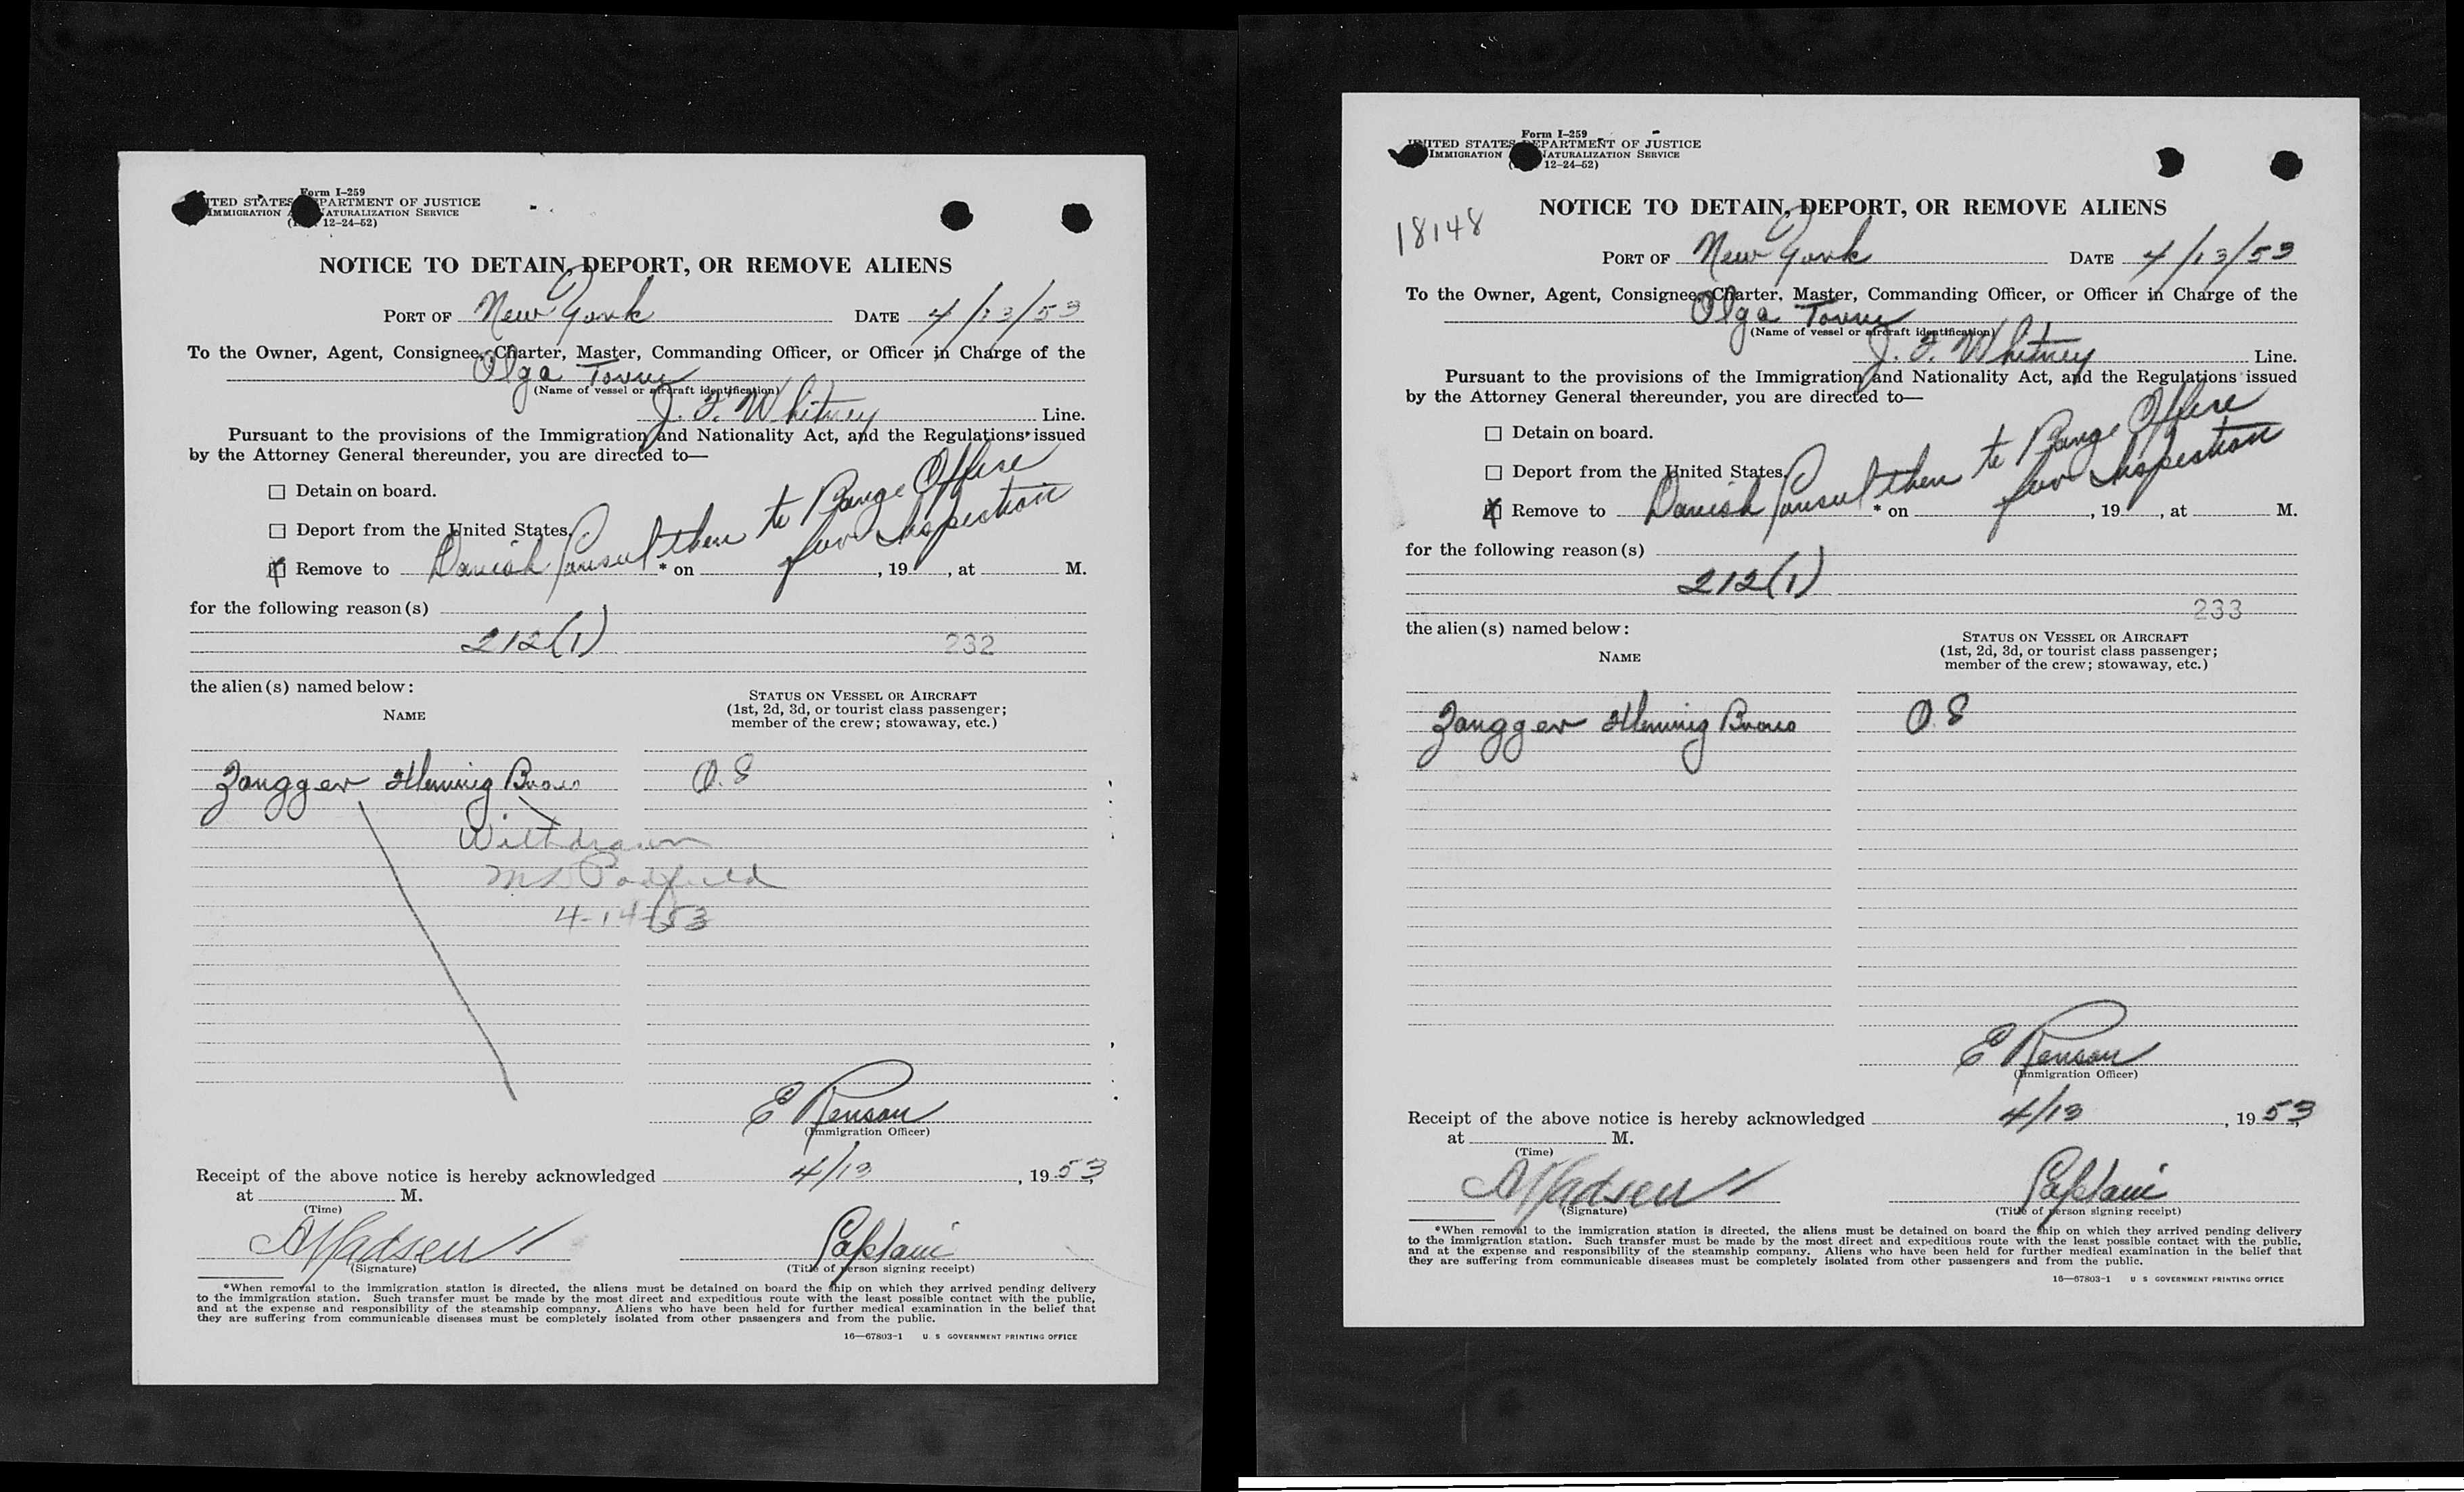 Form I-259
UNITED STATES DEPARTMENT OF JUSTICE
IMMIGRATION NATURALIZATION SERVICE
12-24-52)
NOTICE TO DETAIN, DEPORT, OR REMOVE ALIENS
PORT OF New York DATE 4/13/53
To the Owner, Agent, Consignee, Charter, Master, Commanding Officer, or Officer in Charge of the
Olga Torm
(Name of vessel or aircraft identification)
J. F. Whitney Line.
Pursuant to the provisions of the Immigration and Nationality Act, and the Regulations issued
by the Attorney General thereunder, you are directed to—
☐ Detain on board.
☐ Deport from the United States.
☒ Remove to Danish Consul then to Barge Office for Inspection * on , 19 , at M.
for the following reason(s)
212(1)
232
the alien(s) named below:
NAME
STATUS ON VESSEL OR AIRCRAFT
(1st, 2d, 3d, or tourist class passenger;
member of the crew; stowaway, etc.)
Zangger Flemming O.S
Withdrawn
Padfield
4-14-53
E Renson
(Immigration Officer)
Receipt of the above notice is hereby acknowledged 4/13, 1953
at M.
(Time)
A Madsen Captain
(Signature) (Title of person signing receipt)
*When removal to the immigration station is directed, the aliens must be detained on board the ship on which they arrived pending delivery
to the immigration station. Such transfer must be made by the most direct and expeditious route with the least possible contact with the public,
and at the expense and responsibility of the steamship company. Aliens who have been held for further medical examination in the belief that
they are suffering from communicable diseases must be completely isolated from other passengers and from the public.
16—67803-1 U. S. GOVERNMENT PRINTING OFFICE
Form I-259
UNITED STATES DEPARTMENT OF JUSTICE
IMMIGRATION NATURALIZATION SERVICE
12-24-52)
NOTICE TO DETAIN, DEPORT, OR REMOVE ALIENS
18148
PORT OF New York DATE 4/13/53
To the Owner, Agent, Consignee, Charter, Master, Commanding Officer, or Officer in Charge of the
Olga Torm
(Name of vessel or aircraft identification)
J. F. Whitney Line.
Pursuant to the provisions of the Immigration and Nationality Act, and the Regulations issued
by the Attorney General thereunder, you are directed to—
☐ Detain on board.
☐ Deport from the United States.
☒ Remove to Danish Consul then to Barge Office for Inspection * on , 19 , at M.
for the following reason(s)
212(1)
233
the alien(s) named below:
NAME
STATUS ON VESSEL OR AIRCRAFT
(1st, 2d, 3d, or tourist class passenger;
member of the crew; stowaway, etc.)
Zangger Flemming O.S
E Renson
(Immigration Officer)
Receipt of the above notice is hereby acknowledged 4/13, 1953
at M.
(Time)
A Madsen Captain
(Signature) (Title of person signing receipt)
*When removal to the immigration station is directed, the aliens must be detained on board the ship on which they arrived pending delivery
to the immigration station. Such transfer must be made by the most direct and expeditious route with the least possible contact with the public,
and at the expense and responsibility of the steamship company. Aliens who have been held for further medical examination in the belief that
they are suffering from communicable diseases must be completely isolated from other passengers and from the public.
16—67803-1 U. S. GOVERNMENT PRINTING OFFICE